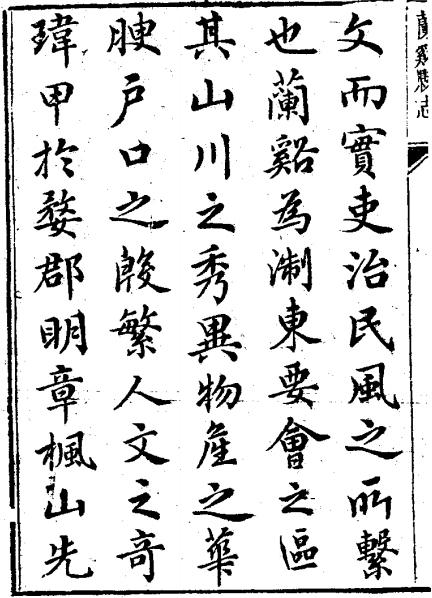 蘭谿縣志
文而實吏治民風之所繫
也蘭谿為淛東要會之區
其山川之秀異物產之華
腴戶口之殷繁人文之奇
瑋甲於婺郡明章楓山先